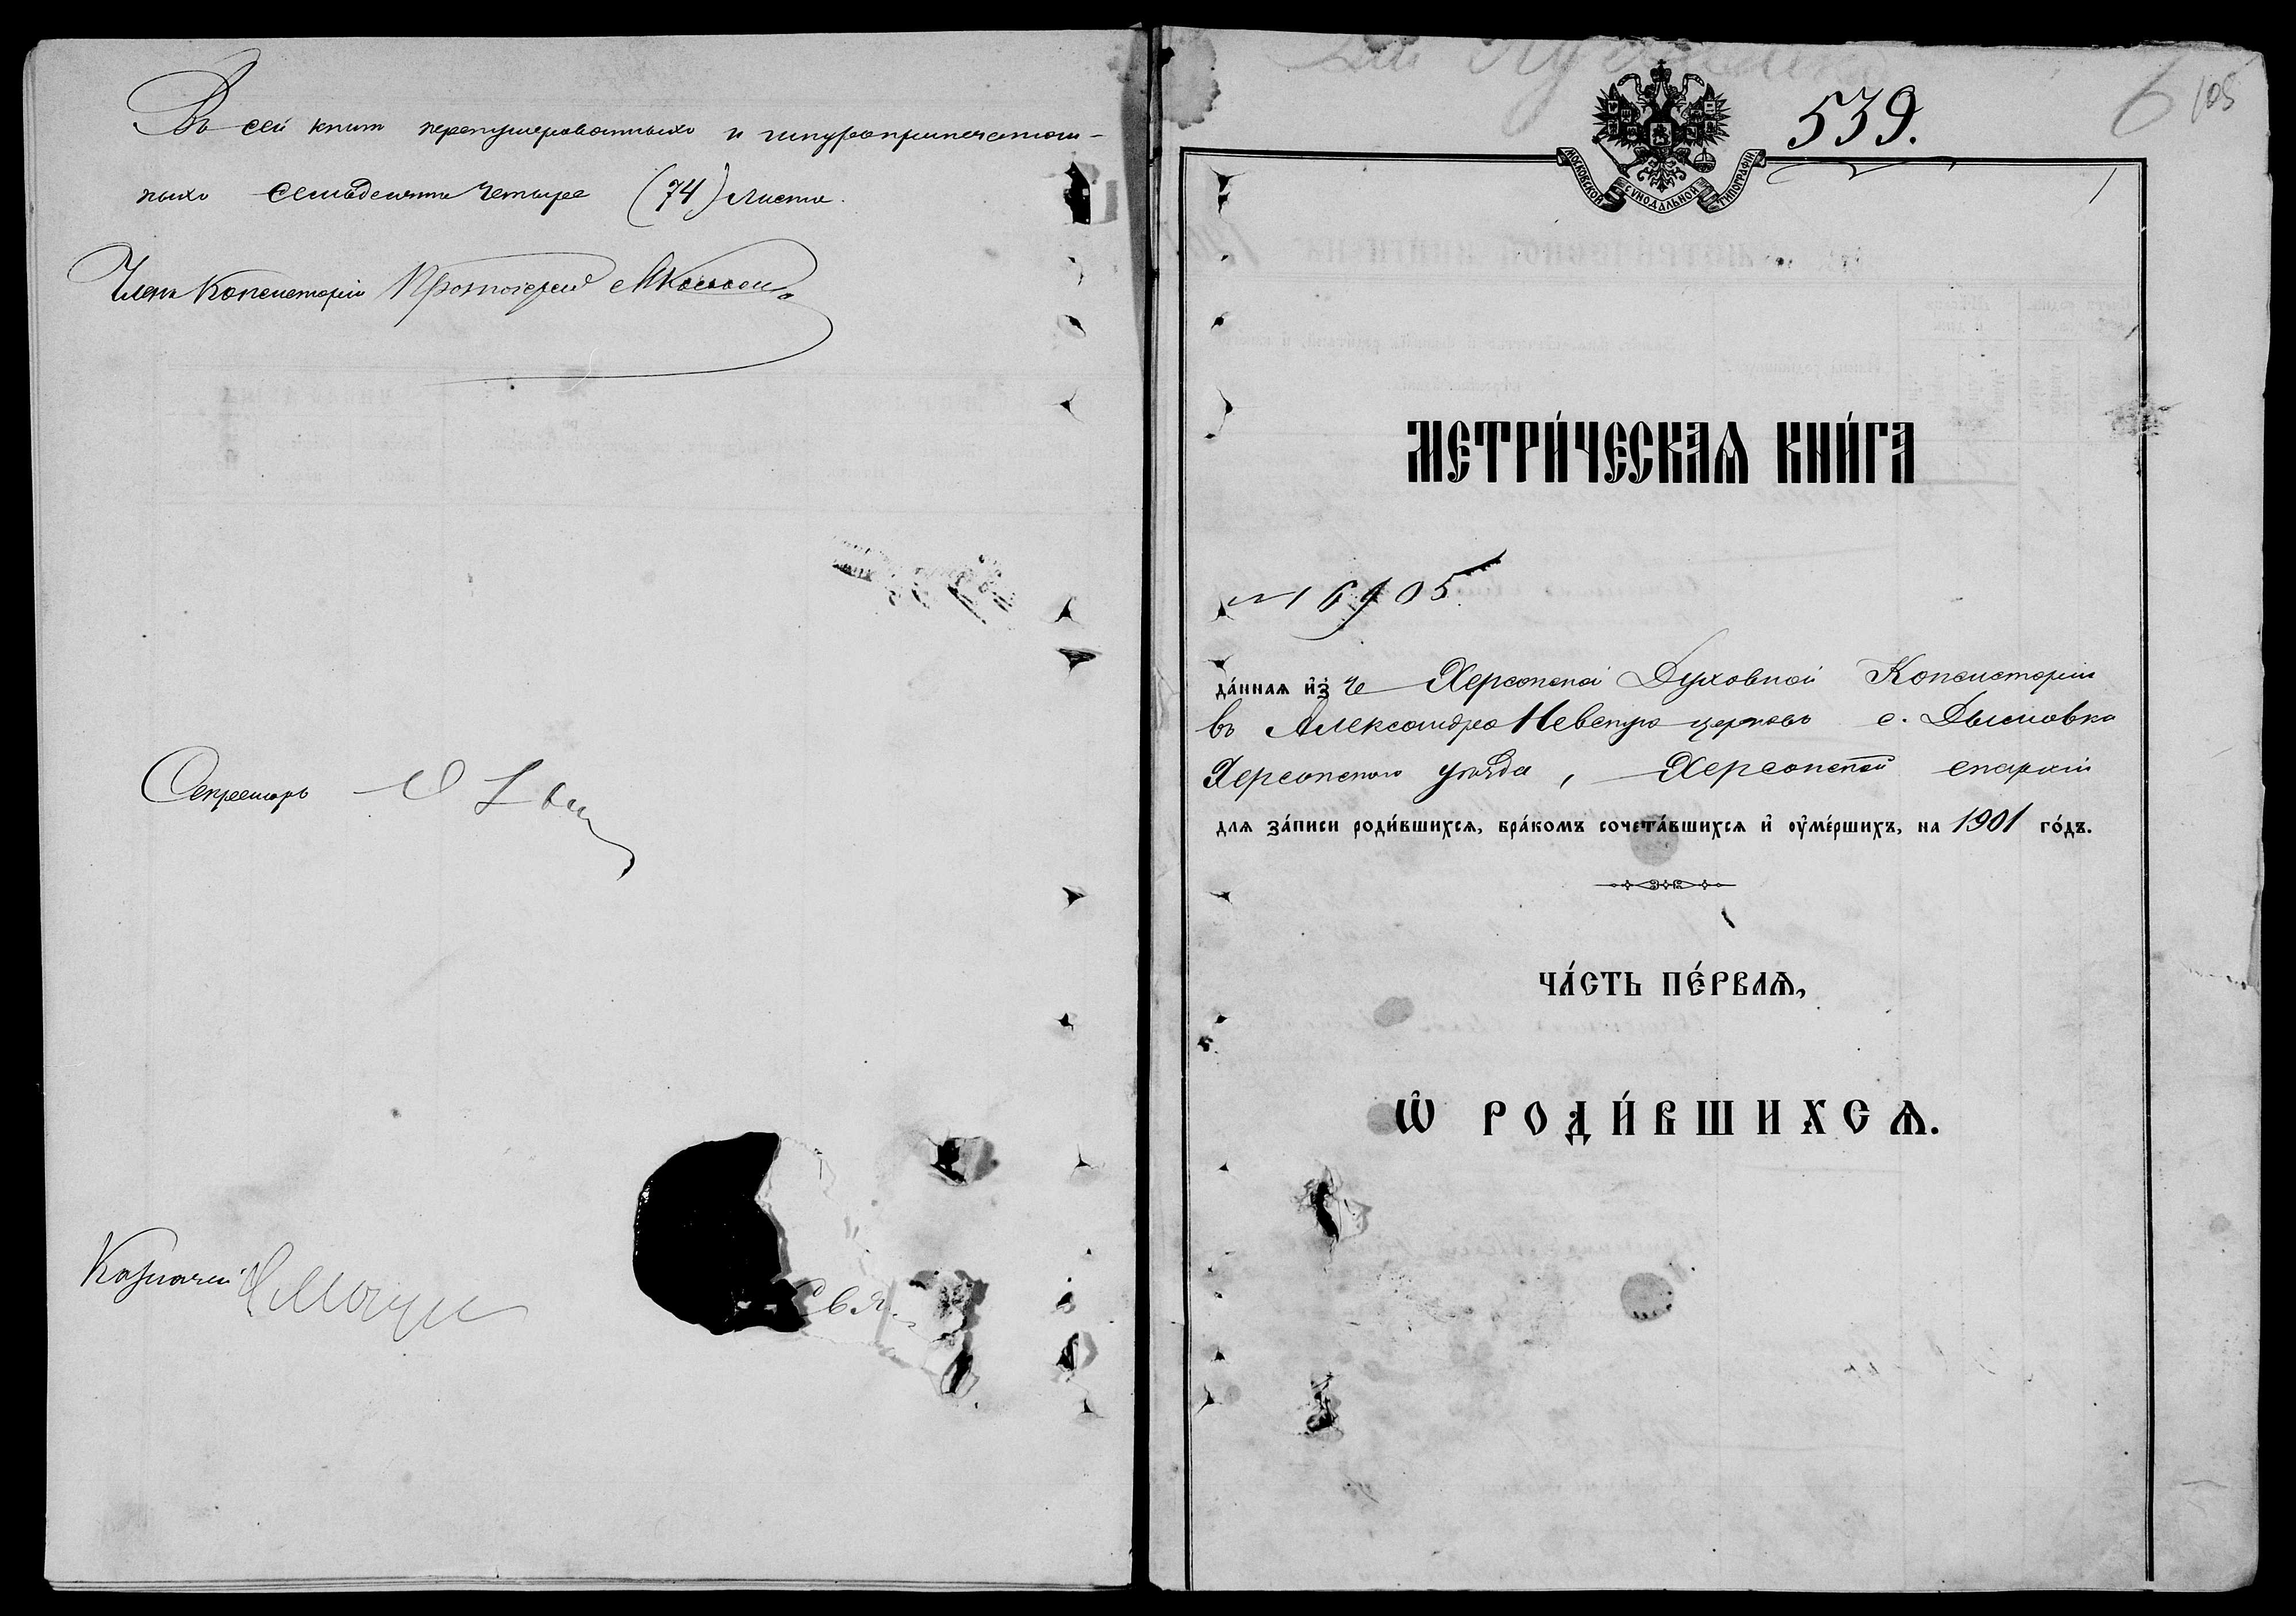 Въ сей книгѣ перенумерованныхъ и шнуроприпечатан-
ныхъ семьдесятъ четыре (74) листа.
Членъ Консисторіи Протоіерей
Секретарь
Казначей
539.
105
МОСКОВСКОЙ СѴНОДАЛЬНОЙ ТИПОГРАФІИ.
МЕТРИ́ЧЕСКАѦ КНИ́ГА
№ 16905
да́ннаѧ и҆з̾ Херсонской Духовной Консисторіи
въ Александро Невскую церковь с. Дымовка
Херсонскаго уѣзда, Херсонской епархіи
для за́писи роди́вшихсѧ, бра́комъ сочета́вшихсѧ и҆ оу҆ме́ршихъ, на 1901 го́дъ.
ЧА́СТЬ ПЕ́РВАѦ,
Ѡ҆ РОДИ́ВШИХСѦ.